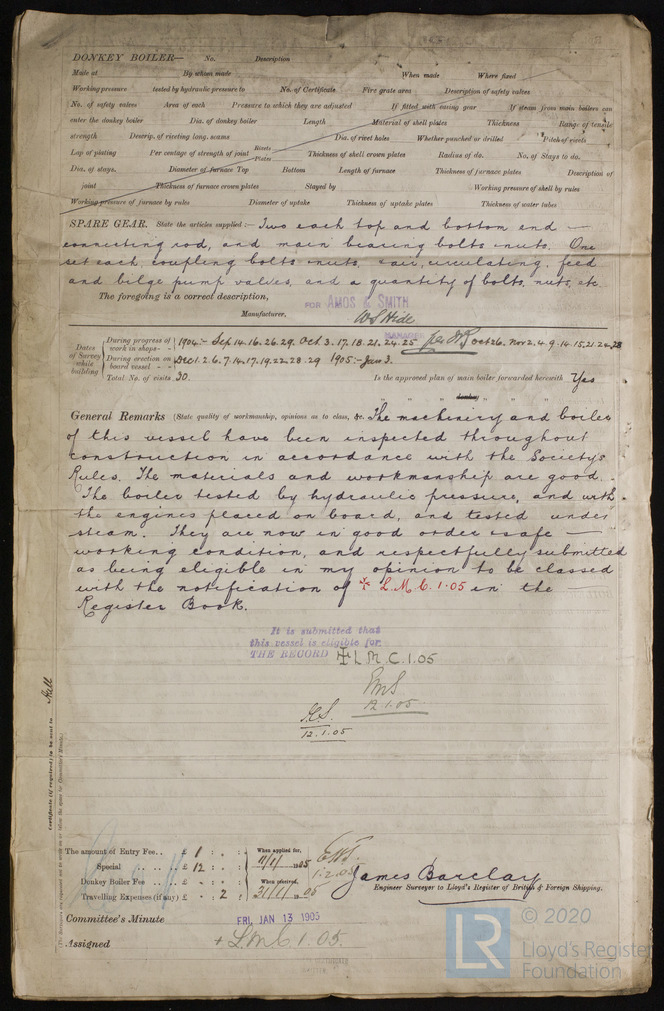 DONKEY BOILER— No. Description
Made at By whom made When made Where fixed
Working pressure tested by hydraulic pressure to No. of Certificate Fire grate area Description of safety valves
No. of safety valves Area of each Pressure to which they are adjusted If fitted with easing gear If steam from main boilers can
enter the donkey boiler Dia. of donkey boiler Length Material of shell plates Thickness Range of tensile
strength Descrip. of riveting long. seams Dia. of rivet holes Whether punched or drilled Pitch of rivets
Lap of plating Per centage of strength of joint Rivets Plates Thickness of shell crown plates Radius of do. No. of Stays to do.
Dia. of stays. Diameter of furnace Top Bottom Length of furnace Thickness of furnace plates Description of
joint Thickness of furnace crown plates Stayed by Working pressure of shell by rules
Working pressure of furnace by rules Diameter of uptake Thickness of uptake plates Thickness of water tubes
SPARE GEAR. State the articles supplied:— Two each top and bottom end
connecting rod, and main bearing bolts & nuts. One
set each coupling bolts & nuts, & air, circulating, feed
and bilge pump valves, and a quantity of bolts, nuts, etc
The foregoing is a correct description,
FOR AMOS & SMITH
Manufacturer. W S Hide
MANAGER
Dates of Survey while building
During progress of work in shops- - 1904:- Sep 14.16.26.29. Oct 3.17.18.21.24.25 Oct 26. Nov 2.4.9.14.15.21.24.28
During erection on board vessel - - Dec 1.2.6.7.14.17.19.22.28.29 1905:- Jan 3.
Total No. of visits 30. Is the approved plan of main boiler forwarded herewith Yes
" " " donkey " " "
General Remarks (State quality of workmanship, opinions as to class, &c. The machinery and boiler
of this vessel have been inspected throughout
construction in accordance with the Society's
Rules. The materials and workmanship are good.
The boiler tested by hydraulic pressure, and with
the engines placed on board, and tested under
steam. They are now in good order & safe
working condition, and respectfully submitted
as being eligible in my opinion to be classed
with the notification of + L.M.C. 1.05 in the
Register Book.
It is submitted that
this vessel is eligible for
THE RECORD + L M C. 1.05
12.1.05
12.1.05
Certificate (if required) to be sent to Hull
The amount of Entry Fee.. £ 1 : . : When applied for,
Special .. .. £ 12 : . : 11/1/ 1905
Donkey Boiler Fee .. .. £ : : When received,
Travelling Expenses (if any) £ . : 2 : 31/1/ 1905
1.2.05
James Barclay
Engineer Surveyor to Lloyd's Register of British & Foreign Shipping.
Committee's Minute FRI. JAN 13 1905
Assigned + L.M.C. 1.05.
LR © 2020
Lloyd's Register
Foundation